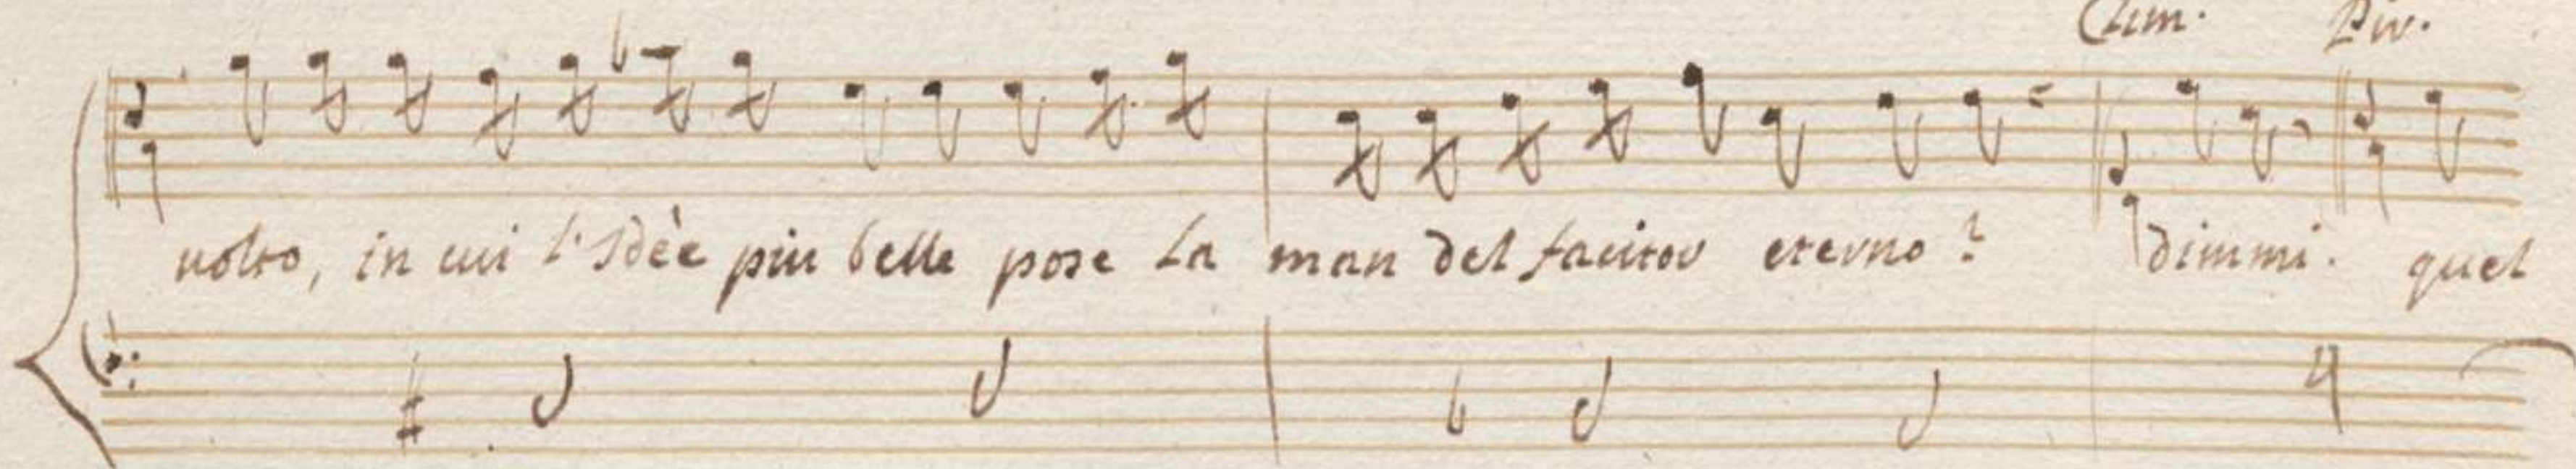 Clim. Piv.
volto, in cui l'Idèe piu belle pose La man del facitor eterno? dimmi. quel